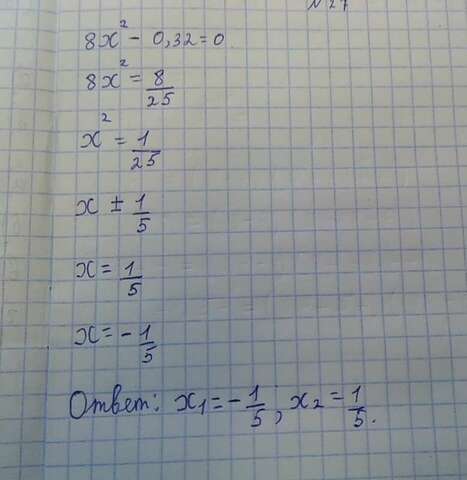 N27
8x² - 0,32 = 0
8x² = 8/25
x² = 1/25
x ± 1/5
x = 1/5
x = - 1/5
Ответ: x₁ = - 1/5; x₂ = 1/5.